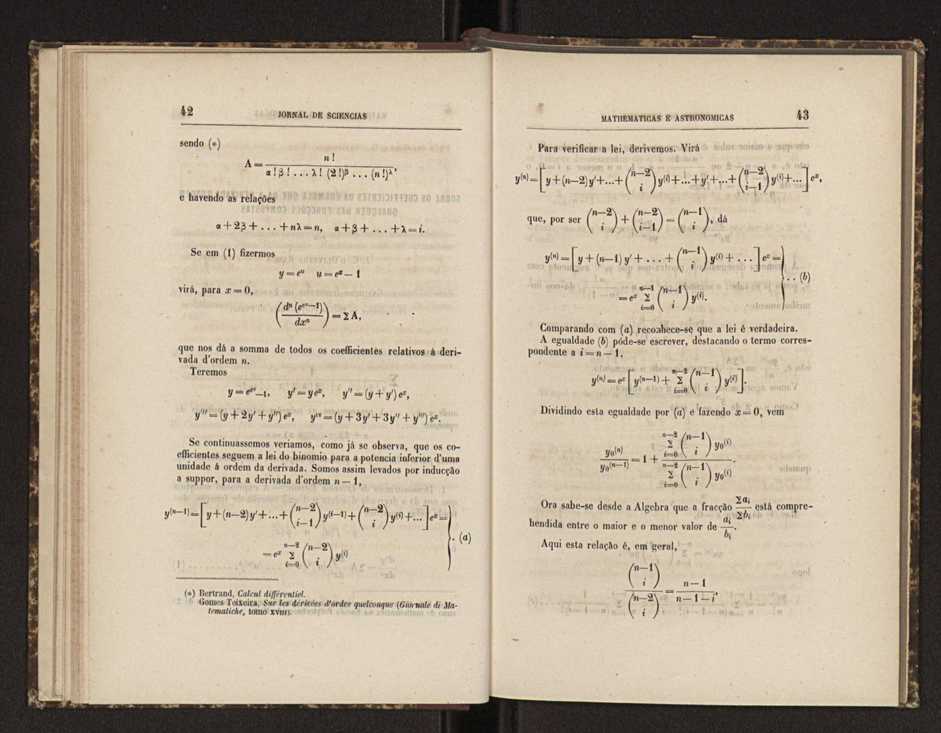 42
JORNAL DE SCIENCIAS
sendo (*)
A = n ! / α ! β ! . . . λ ! (2 !)^β . . . (n !)^λ ,
e havendo as relações
α + 2β + . . . + nλ = n, α + β + . . . + λ = i.
Se em (1) fizermos
y = e^u u = e^x − 1
virá, para x = 0,
(d^n (e^{e^x−1}) / dx^n) = Σ A,
que nos dá a somma de todos os coefficientes relativos á deri-
vada d'ordem n.
Teremos
y = e^{e^x}−1, y' = y e^x, y'' = (y + y') e^x,
y''' = (y + 2y' + y'') e^x, y^{IV} = (y + 3y' + 3y'' + y''') e^x.
Se continuassemos veriamos, como já se observa, que os co-
efficientes seguem a lei do binomio para a potencia inferior d'uma
unidade á ordem da derivada. Somos assim levados por inducção
a suppor, para a derivada d'ordem n − 1,
y^{(n−1)} = [y + (n−2)y' + ... + (n−2 / i−1) y^{(i−1)} + (n−2 / i) y^{(i)} + ...] e^x =
= e^x Σ_{i=0}^{n−2} (n−2 / i) y^{(i)} } . (a)
(*) Bertrand, Calcul différentiel.
Gomes Teixeira, Sur les dérivées d'ordre quelconque (Giornale di Ma-
tematiche, tomo XVIII).
MATHEMATICAS E ASTRONOMICAS
43
Para verificar a lei, derivemos. Virá
y^{(n)} = [y + (n−2)y' + ... + (n−2 / i) y^{(i)} + ... + y' + ... + (n−2 / i−1) y^{(i)} + ...] e^x,
que, por ser (n−2 / i) + (n−2 / i−1) = (n−1 / i), dá
y^{(n)} = [y + (n−1) y' + . . . + (n−1 / i) y^{(i)} + . . .] e^x =
= e^x Σ_{i=0}^{n−1} (n−1 / i) y^{(i)}. } . . (b)
Comparando com (a) reconhece-se que a lei é verdadeira.
A egualdade (b) póde-se escrever, destacando o termo corres-
pondente a i = n − 1,
y^{(n)} = e^x [y^{(n−1)} + Σ_{i=0}^{n−2} (n−1 / i) y^{(i)}].
Dividindo esta egualdade por (a) e fazendo x = 0, vem
y₀^{(n)} / y₀^{(n−1)} = 1 + Σ_{i=0}^{n−2} (n−1 / i) y₀^{(i)} / Σ_{i=0}^{n−2} (n−1 / i) y₀^{(i)} .
Ora sabe-se desde a Algebra que a fracção Σa_i / Σb_i está compre-
hendida entre o maior e o menor valor de a_i / b_i.
Aqui esta relação é, em geral,
(n−1 / i) / (n−2 / i) = n − 1 / n − 1 − i ,